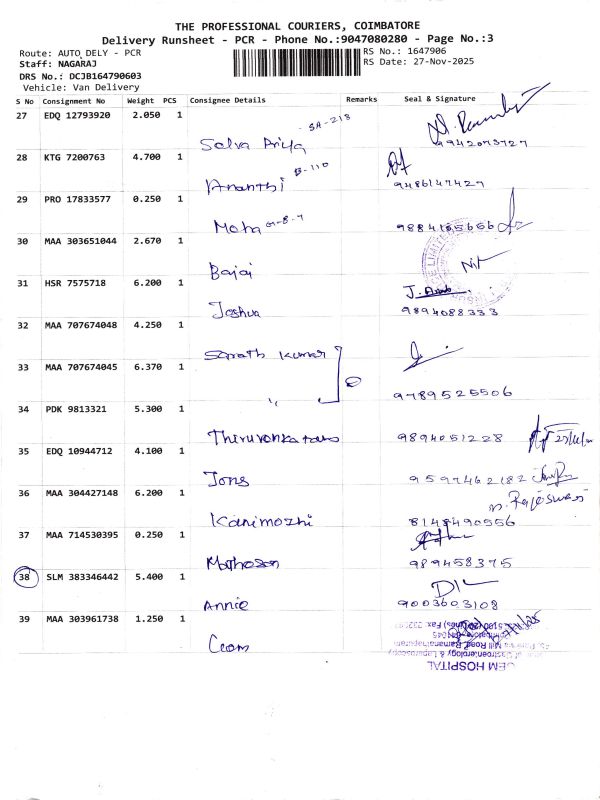 THE PROFESSIONAL COURIERS, COIMBATORE
Delivery Runsheet - PCR - Phone No.:9047080280 - Page No.:3
Route: AUTO DELY - PCR
RS No.: 1647906
Staff: NAGARAJ
RS Date: 27-Nov-2025
DRS No.: DCJB164790603
Vehicle: Van Delivery
S No Consignment No Weight PCS Consignee Details Remarks Seal & Signature
27 EDQ 12793920 2.050 1
SA-218
Selva Priya 9942073727
28 KTG 7200763 4.700 1
B-110
Ananthi 9486147427
29 PRO 17833577 0.250 1
9884165656
30 MAA 303651044 2.670 1
Bajaj
31 HSR 7575718 6.200 1
Joshua 9894088333
32 MAA 707674048 4.250 1
Sarath Kumar
33 MAA 707674045 6.370 1
" 9789525506
34 PDK 9813321 5.300 1
9894051228
35 EDQ 10944712 4.100 1
Jons
36 MAA 304427148 6.200 1
Kanimozhi 8148490556
37 MAA 714530395 0.250 1
989458375
38 SLM 383346442 5.400 1
Annie 9003603108
39 MAA 303961738 1.250 1
GEM HOSPITAL